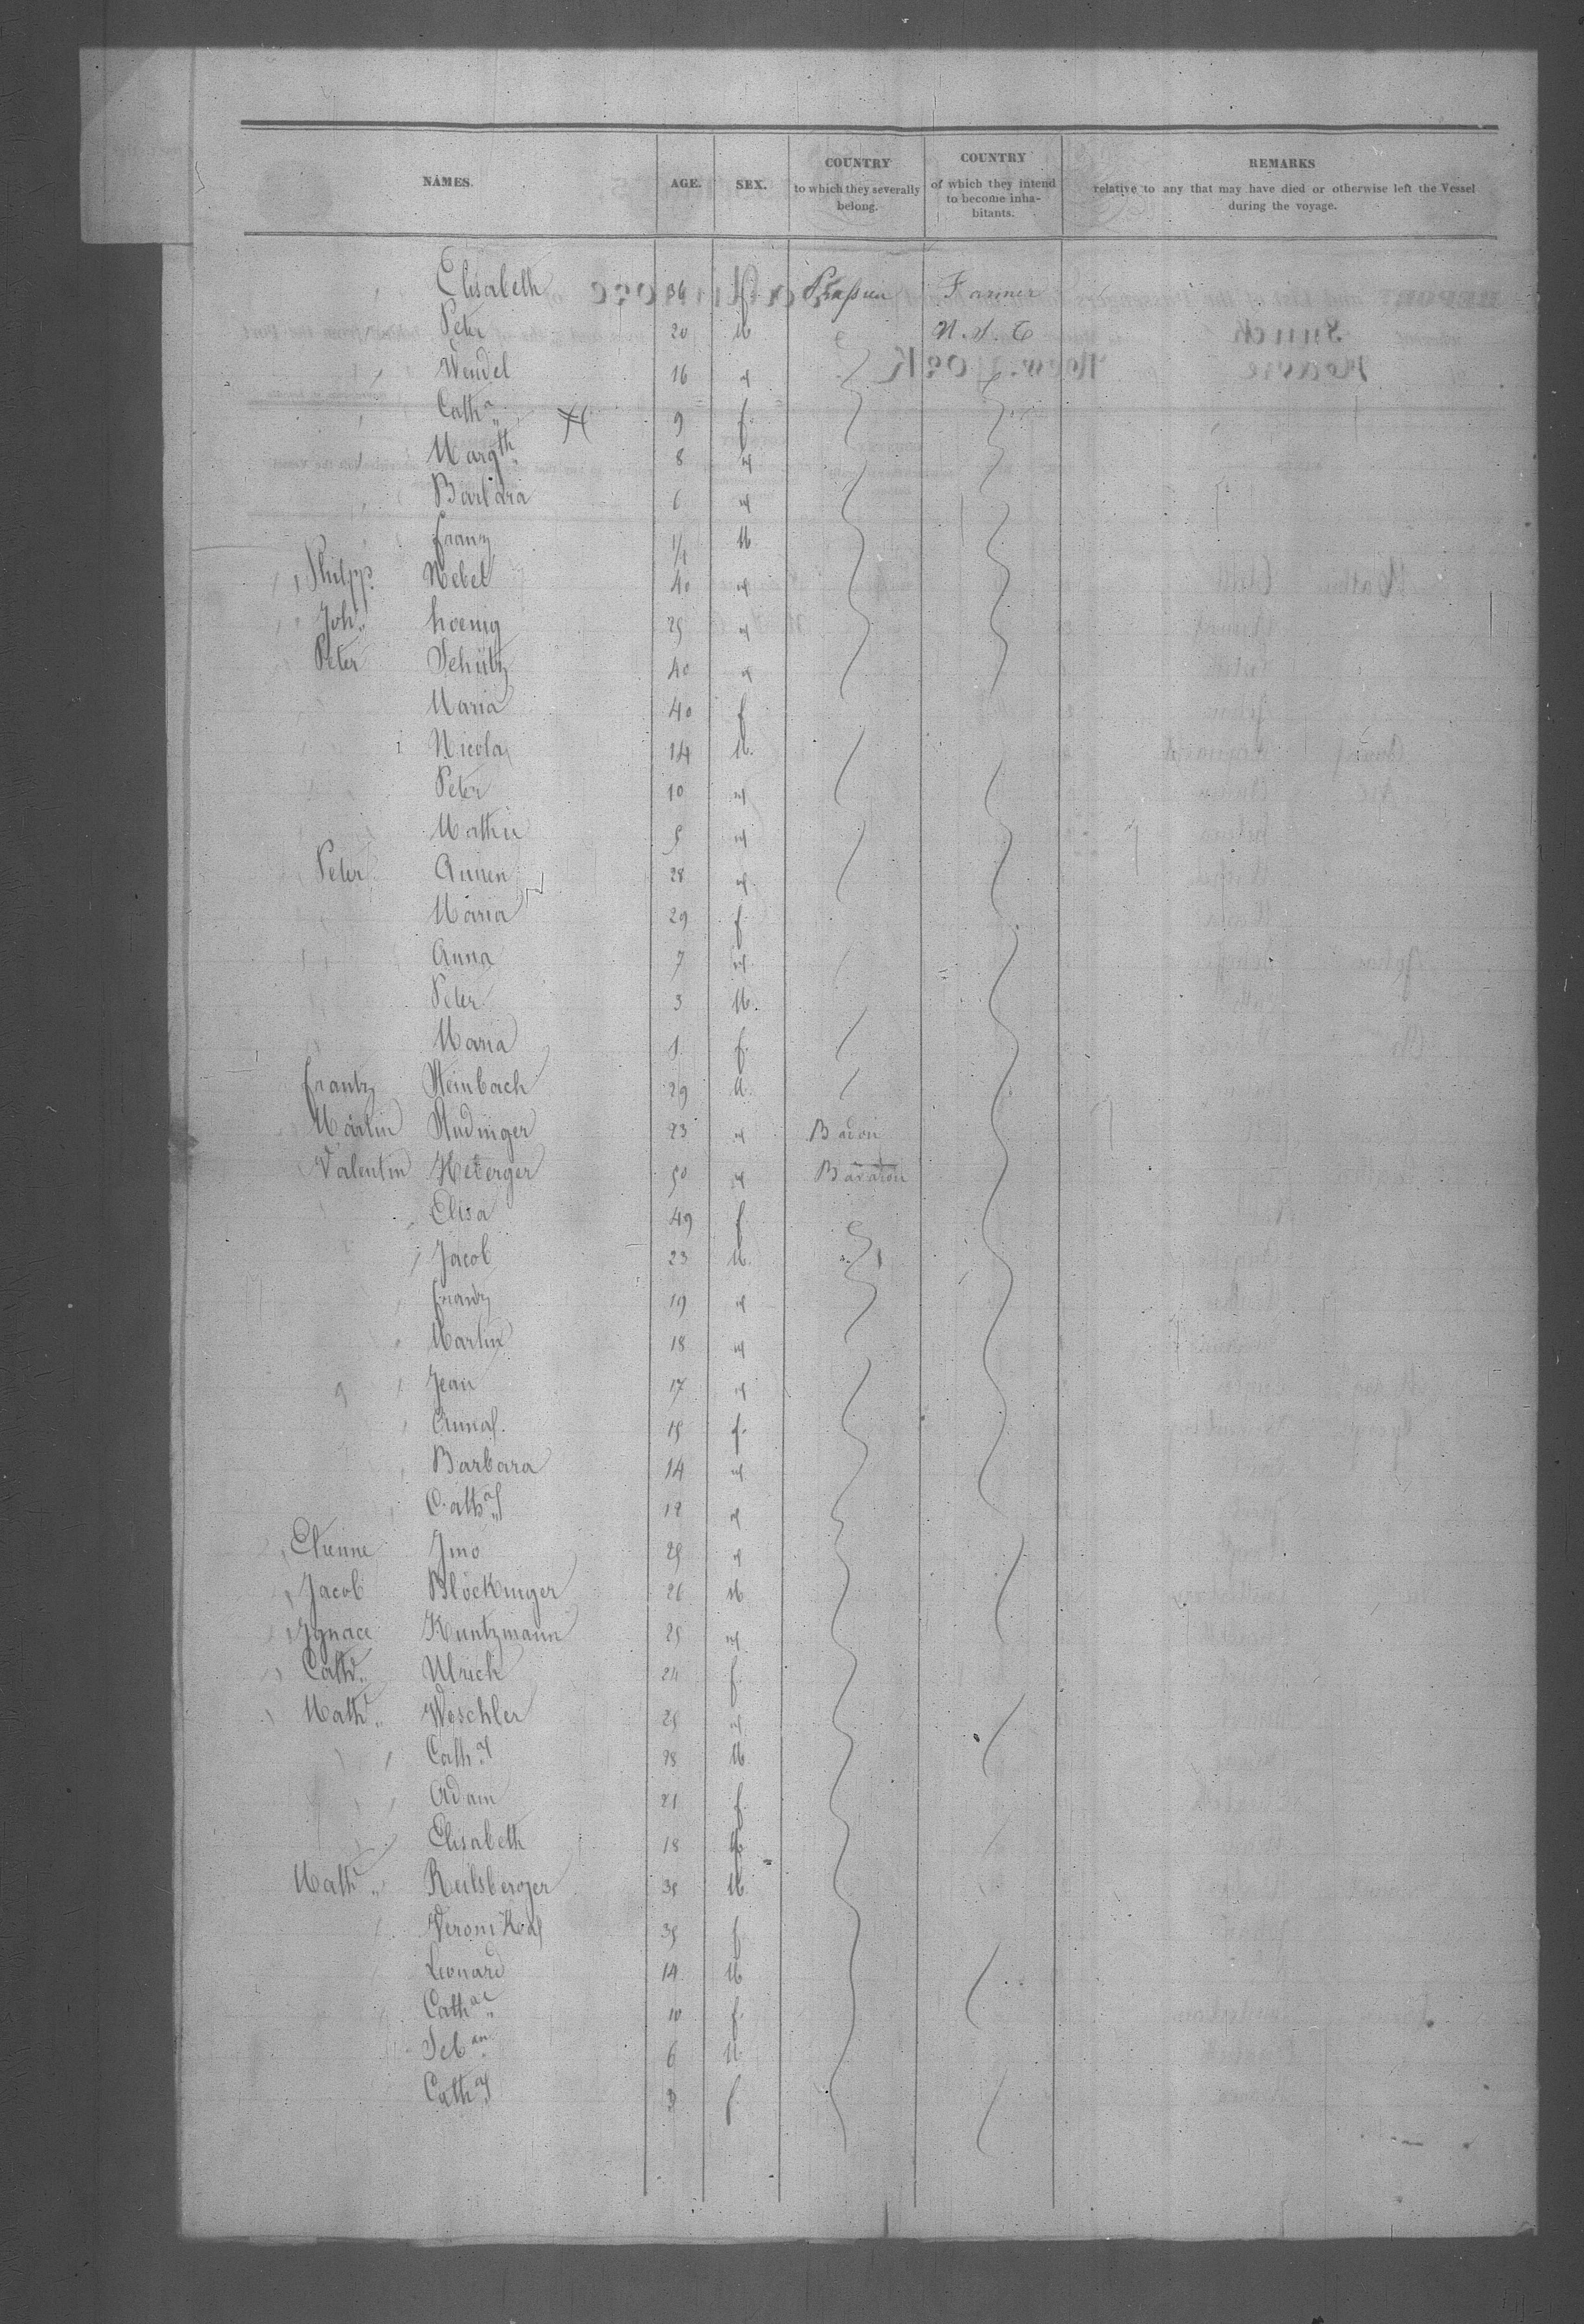 NAMES. AGE. SEX. COUNTRY to which they severally belong. COUNTRY of which they intend to become inhabitants. REMARKS relative to any that may have died or otherwise left the Vessel during the voyage.
Elisabeth 36 f Prussien Farmer
Peter 20 M N. S. C
Wendel 16 "
Cath.a 9 f.
Margth. 8 "
Barbara 6 "
franz 1/4 M
Philipp. Nebel 40 "
Joh. hoenig 25 "
Peter Schütz 40 "
Maria 40 f
Nicolas 14 M.
Peter 10 "
Mathis 5 "
Peter Annen 28 "
Maria 29 f
Anna 7 "
Peter 3 M.
Maria 1 f.
frantz Steinbach 29 M.
Martin Studinger 23 " Baden
Valentin Heberger 50 "
Elisa 49 f
Jacob 23 M.
frantz 19 "
Martin 18 "
Jean 17 "
Anna 15 f.
Barbara 14 "
Cath.a 12 "
Etienne Jmo 25 "
Jacob Blöckinger 26 M
Ignace Kuntzmann 25 "
Cath. Ulrich 24 f
Math. Weschler 25 "
Cath.a 28 M
Adam 21 f
Elisabeth 18
Math. Reilsberger 35 M
Veronika 35 f
Leonard 14 M
Cath.a 10 f.
Seb.an 6 M
Cath.a 3 f